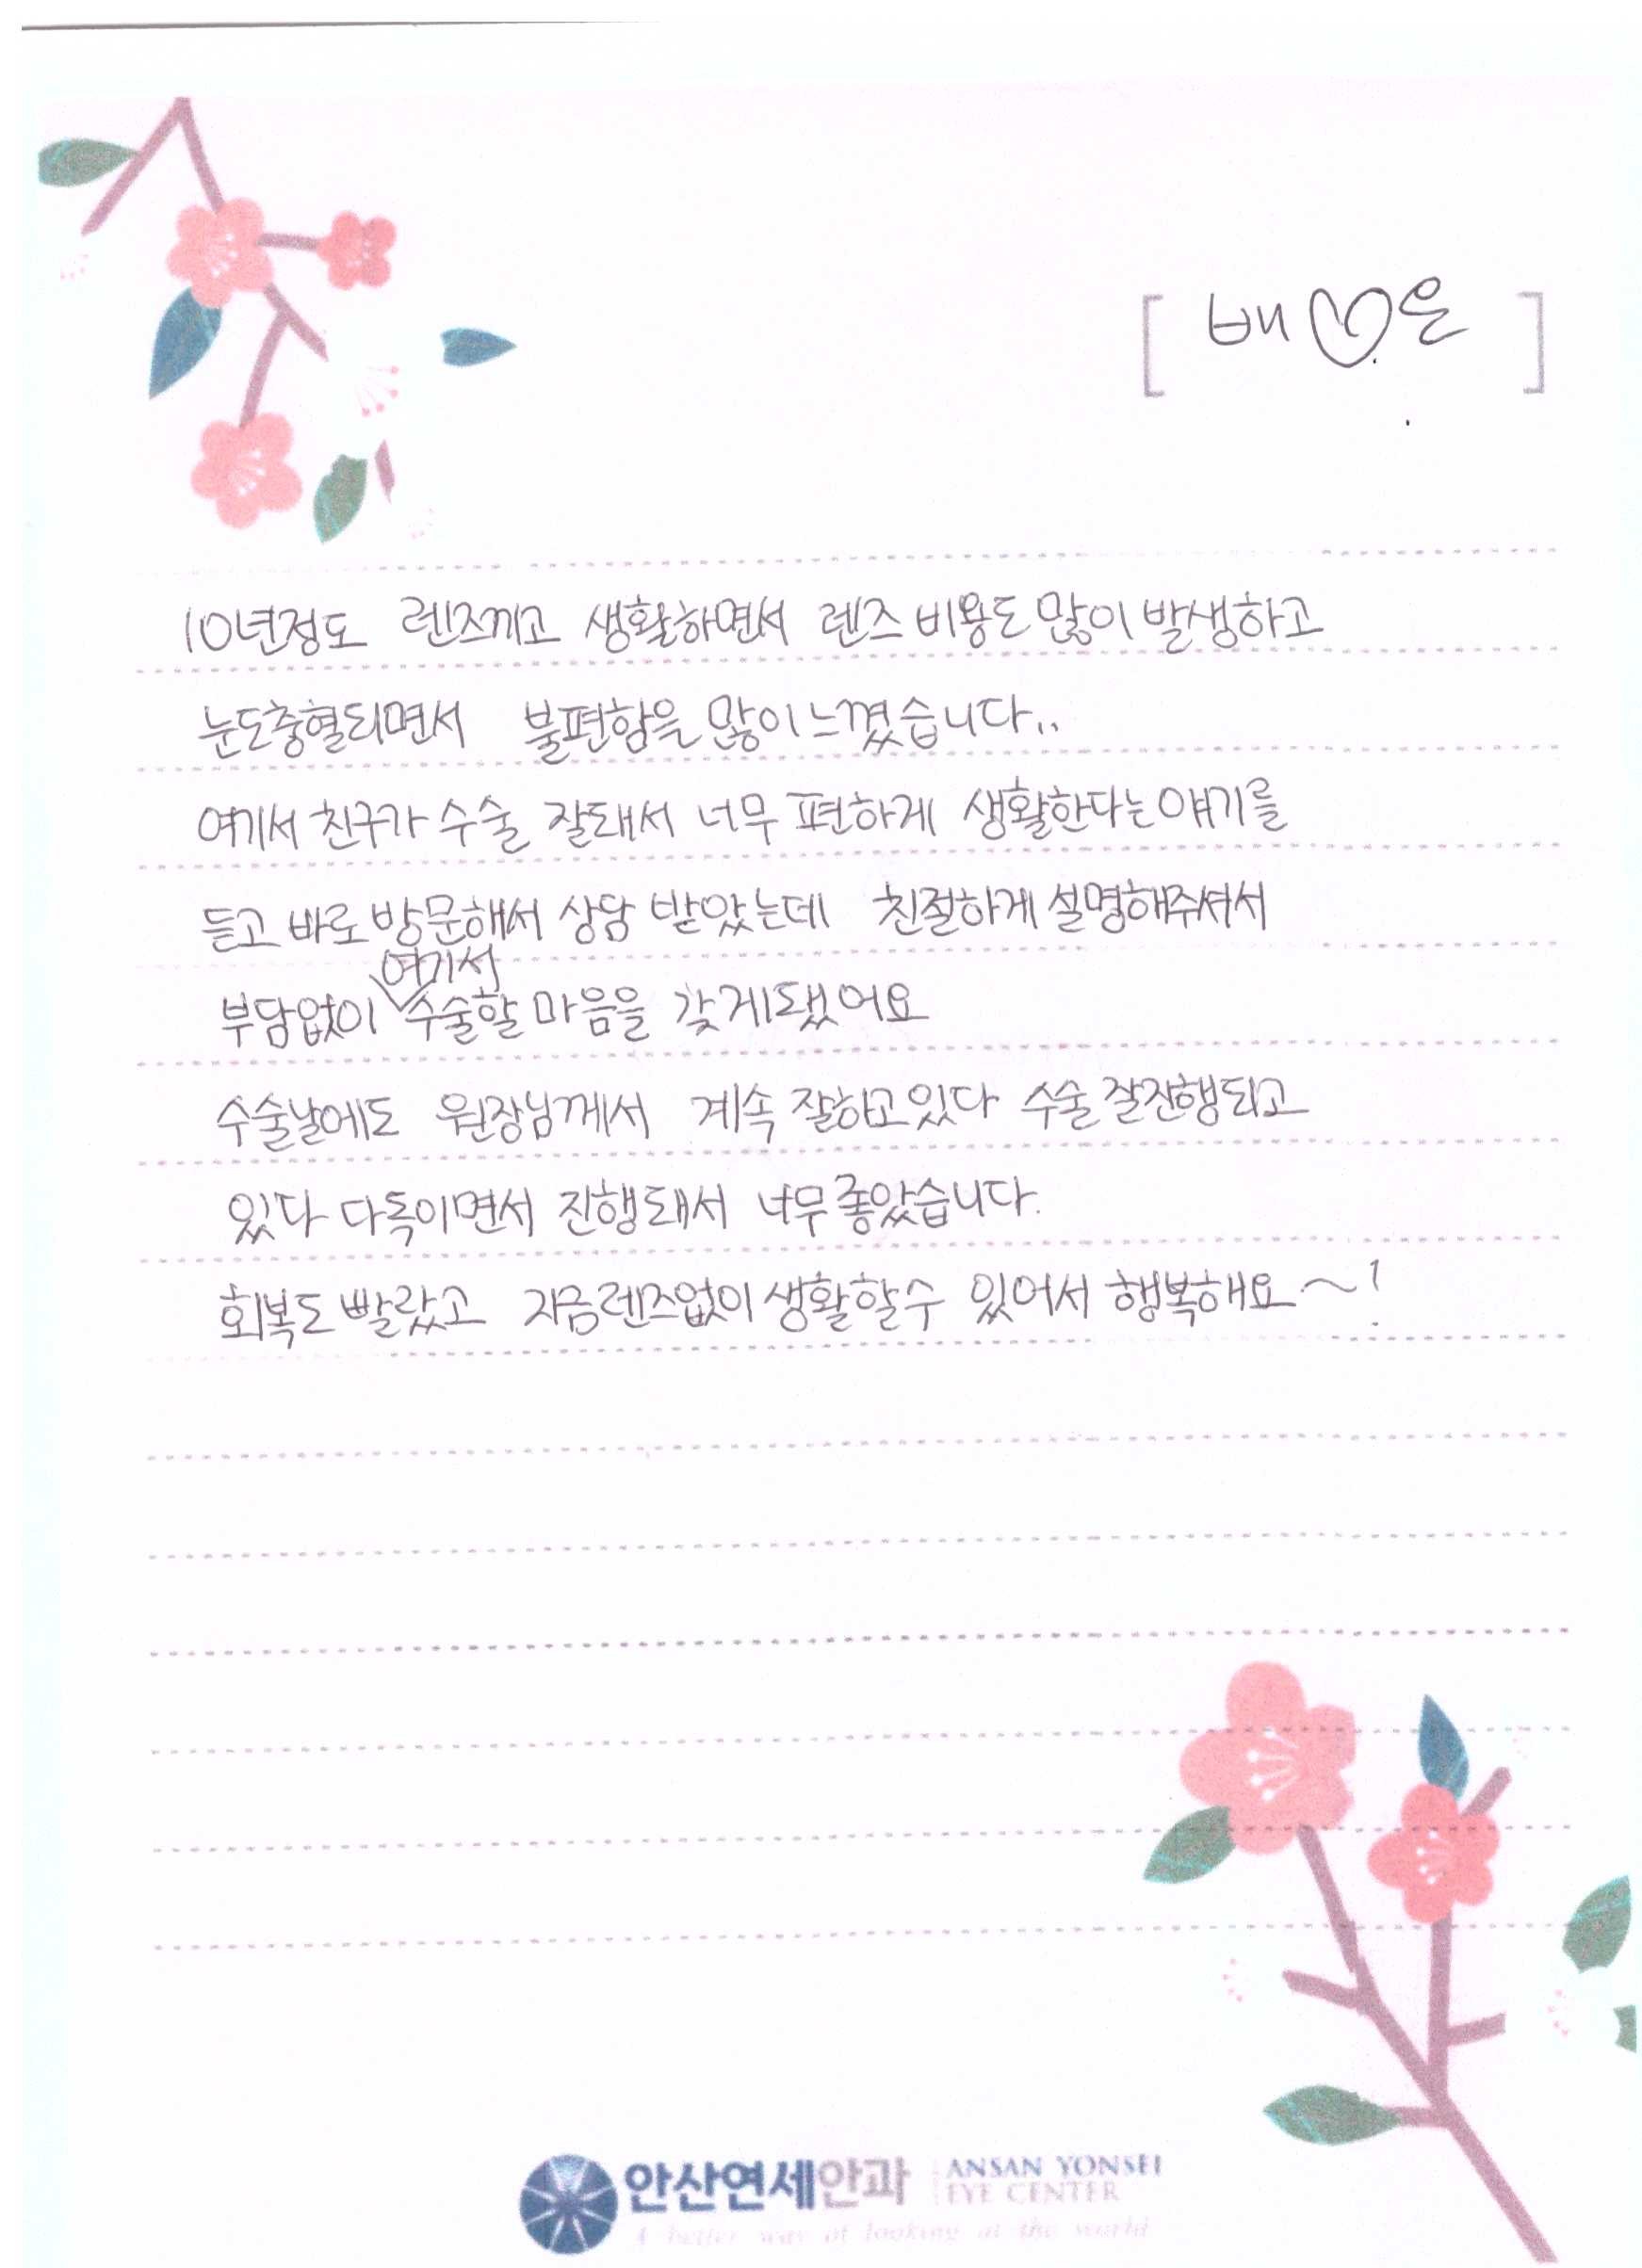 [ 배♡은 ]
10년정도 렌즈끼고 생활하면서 렌즈 비용도 많이 발생하고
눈도충혈되면서 불편함을 많이 느꼈습니다..
여기서 친구가 수술 잘돼서 너무 편하게 생활한다는 얘기를
듣고 바로 방문해서 상담 받았는데 친절하게 설명해주셔서
부담없이 여기서 수술할 마음을 갖게됐어요
수술날에도 원장님께서 계속 잘하고있다 수술 잘진행되고
있다 다독이면서 진행돼서 너무 좋았습니다.
회복도 빨랐고 지금렌즈없이 생활할수 있어서 행복해요~!
안산연세안과 ANSAN YONSEI EYE CENTER
A better way of looking at the world